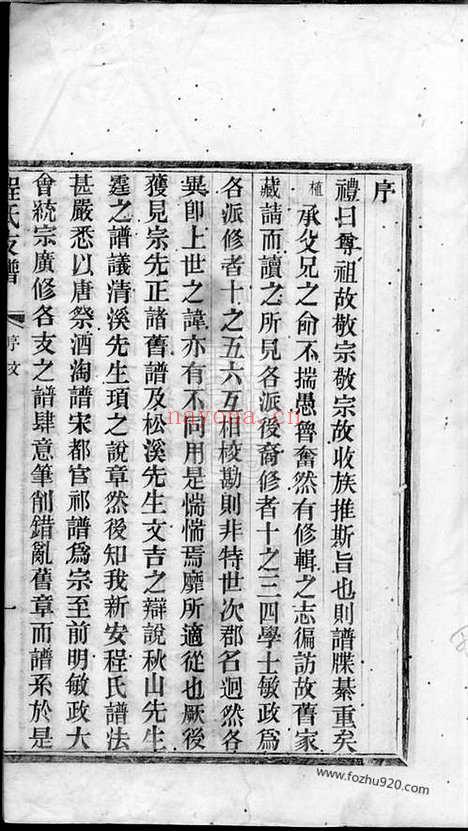 序
禮曰尊祖故敬宗敬宗故收族推斯旨也則譜牒綦重矣
植承父兄之命不揣愚魯奮然有修輯之志徧訪故舊家
藏請而讀之所見各派後裔修者十之三四學士敏政為
各派修者十之五六互相校勘則非特世次郡名迥然各
異即上世之諱亦有不同用是惴惴焉靡所適從也厥後
獲見宗先正諸舊譜及松溪先生文吉之辯說秋山先生
霆之譜議清溪先生瑣之說章然後知我新安程氏譜法
甚嚴悉以唐祭酒淘譜宋都官祁譜為宗至前明敏政大
會統宗廣修各支之譜肆意筆削錯亂舊章而譜系於是
程氏支譜
序文
一
nayona.cn
www.fozhu920.com